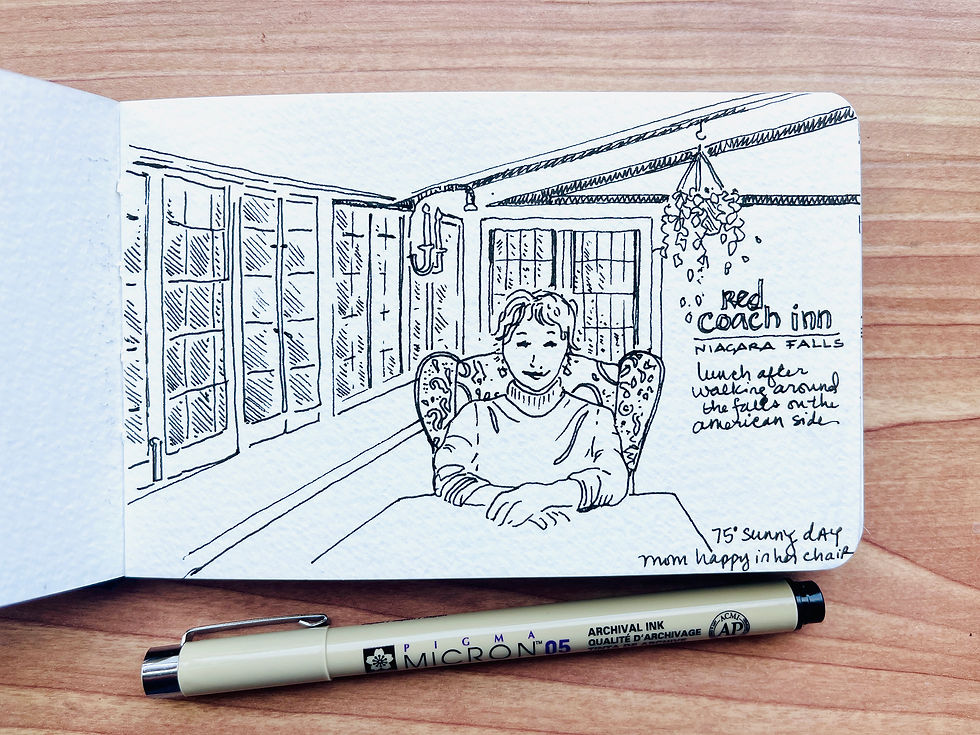 Red
coach inn
NIAGARA FALLS
lunch after
walking around
the falls on the
american side
75° sunny dAy
mom happy in her chair
PIGMA
MICRON™ 05
ARCHIVAL INK
QUALITÉ D'ARCHIVAGE
ACMI
AP